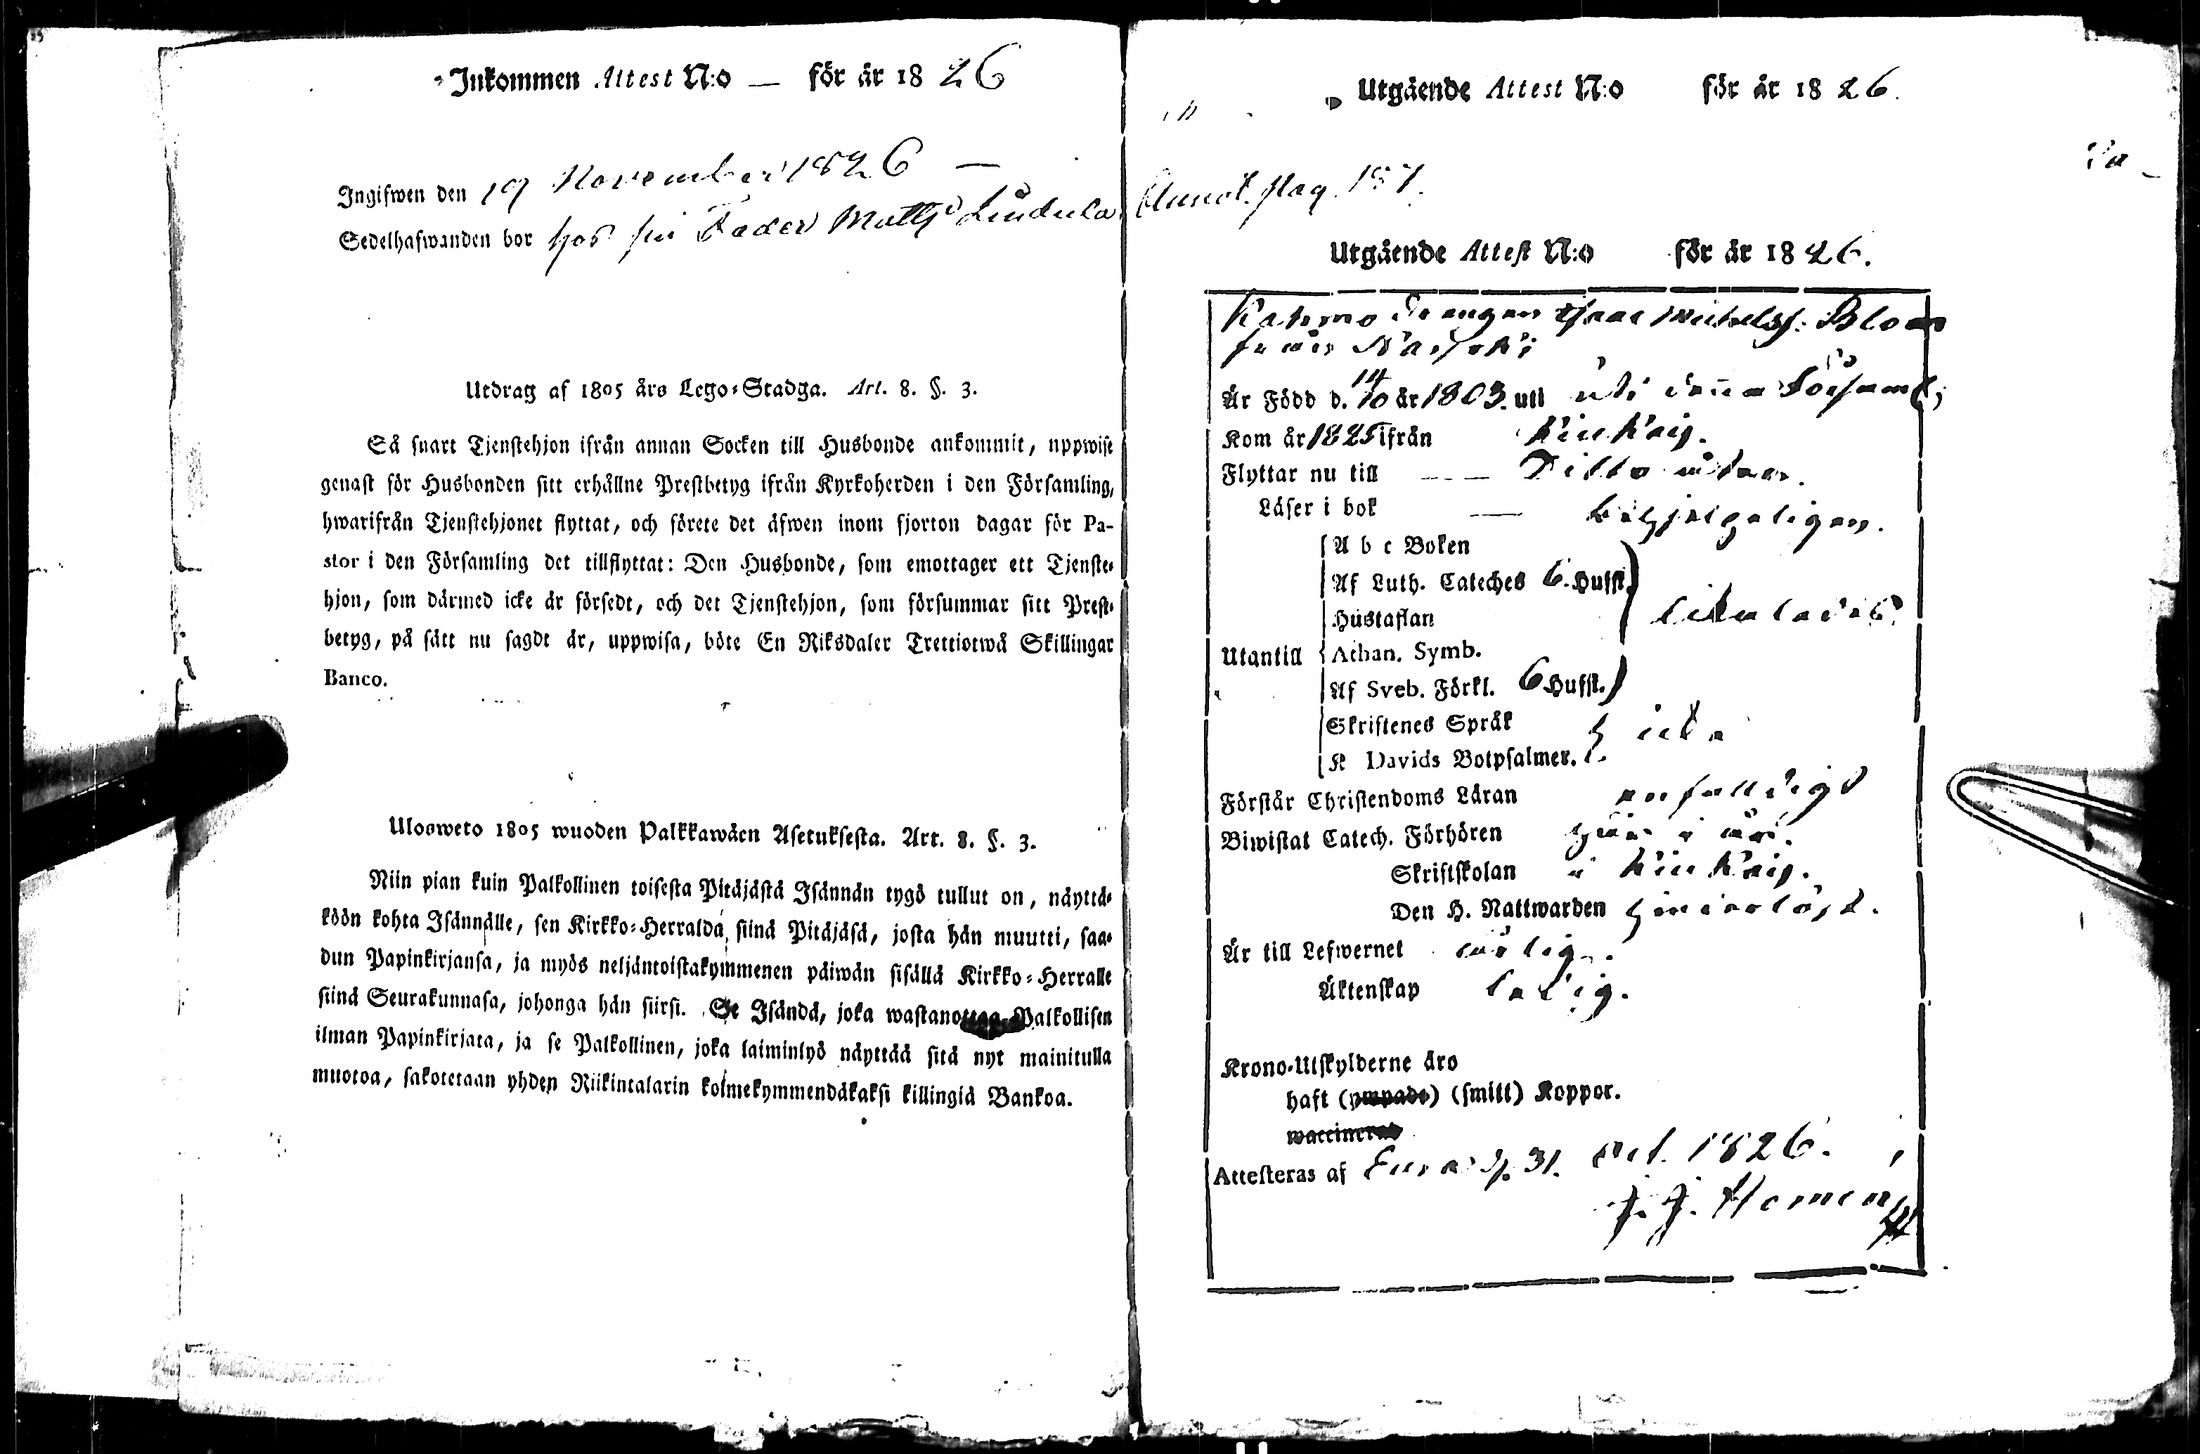 Inkommen Attest N:o — för år 1826
Ingifwen den 19 November 1826 —
Sedelhafwanden bor hos sin Fader Matts Lindula
Utdrag af 1805 års Lego-Stadga. Art. 8. §. 3.
Så snart Tjenstehjon ifrån annan Socken till Husbonde ankommit, uppwise
genast för Husbonden sitt erhållne Prestbetyg ifrån Kyrkoherden i den Församling,
hwarifrån Tjenstehjonet flyttat, och förete det äfwen inom fjorton dagar för Pa-
stor i den Församling det tillflyttat: Den Husbonde, som emottager ett Tjenste-
hjon, som därmed icke är försedt, och det Tjenstehjon, som försummar sitt Prest-
betyg, på sätt nu sagdt är, uppwisa, böte En Riksdaler Trettiotwå Skillingar
Banco.
Ulosweto 1805 wuoden Palkkawäen Asetuksesta. Art. 8. §. 3.
Niin pian kuin Palkollinen toisesta Pitäjästä Isännän tygö tullut on, näyttä-
köön kohta Isännälle, sen Kirkko-Herralda, siinä Pitäjäsä, josta hän muutti, saa-
dun Papinkirjansa, ja myös neljäntoistakymmenen päiwän sisällä Kirkko-Herralle
siinä Seurakunnasa, johonga hän siirsi. Se Isändä, joka wastanottaa Palkollisen
ilman Papinkirjata, ja se Palkollinen, joka laiminlyö näyttää sitä nyt mainitulla
muotoa, sakotetaan yhden Riikintalarin kolmekymmendäkaksi killingiä Bankoa.
Utgående Attest N:o för år 1826.
Annot. pag. 187.
Utgående Attest N:o för år 1826.
Drengen Isaac Michelss. Blom
från
Är Född d. 14/10 år 1803. uti denna Församl;
Kom år 1825 ifrån Kiukais.
Flyttar nu till — — Ditto åter.
Läser i bok —
A b c Boken
Af Luth. Cateches 6. Hufst.
Hustaflan
Utantill Athan. Symb.
Af Sveb. Förkl. 6 Hufst.
Skriftenes Språk
K Davids Botpsalmer. icke
Förstår Christendoms Läran enfalldigt
Biwistat Catech. Förhören
Skriftskolan i Kiukais.
Den H. Nattwarden
Är till Lefwernet ärlig.
Äktenskap ledig.
Krono-Utskylderne äro
haft (ympade) (smitt) Koppor.
waccinerad
Attesteras af Eura d. 31. Oct. 1826.